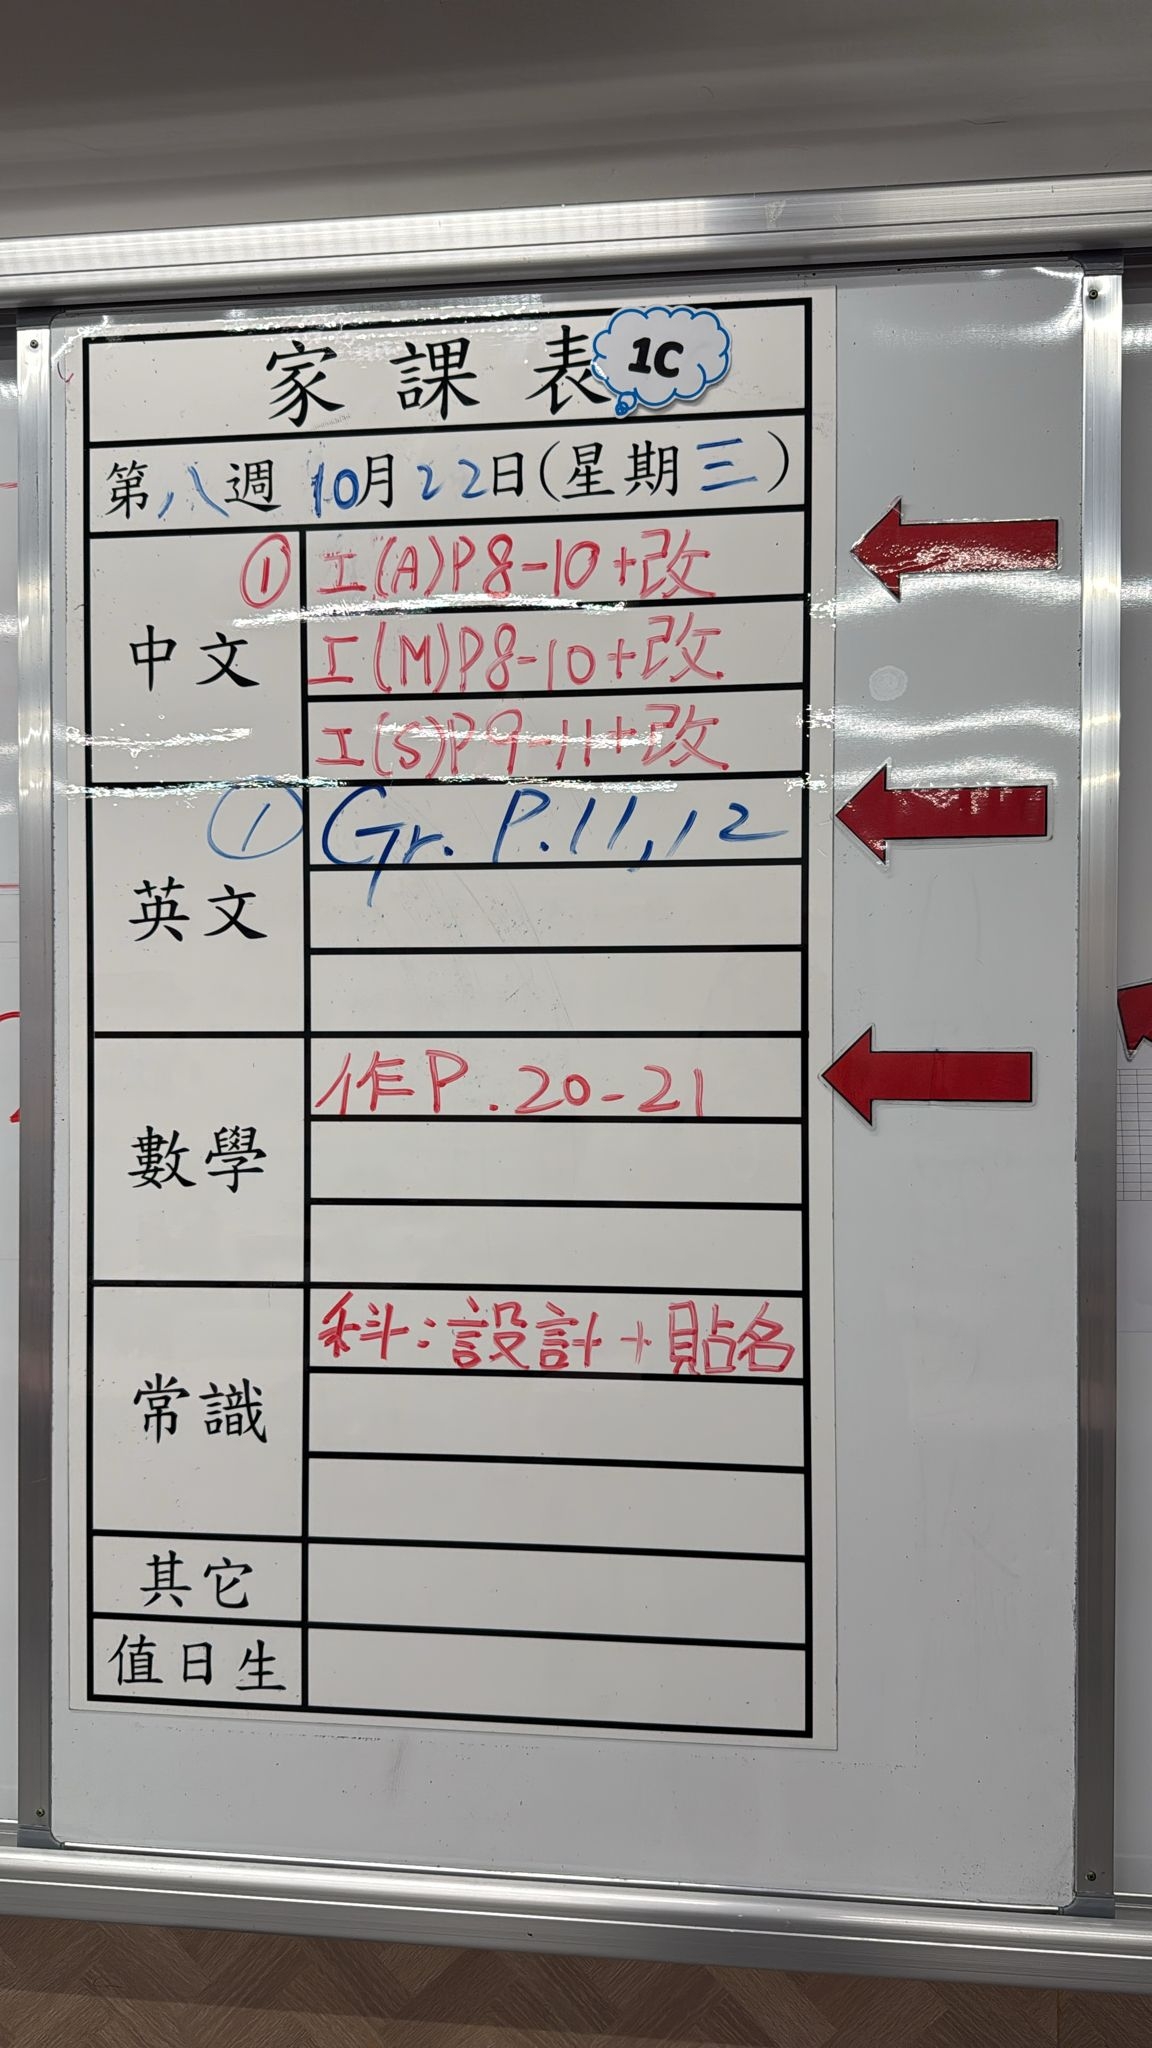 家課表 1C
第八週 10月22日(星期三)
中文
① 工(A)P8-10+改
工(M)P8-10+改
工(S)P9-11+改
英文
① Gr. P.11,12
數學
作P.20-21
常識
科:設計+貼名
其它
值日生